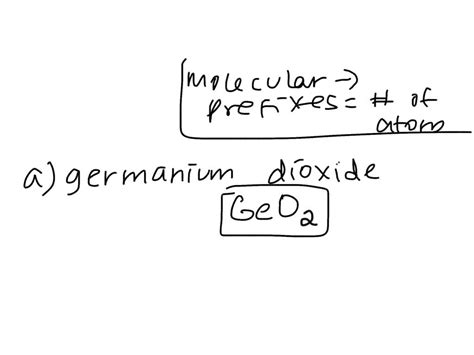 molecular →
prefixes = # of
atom
a) germanium dioxide
GeO₂